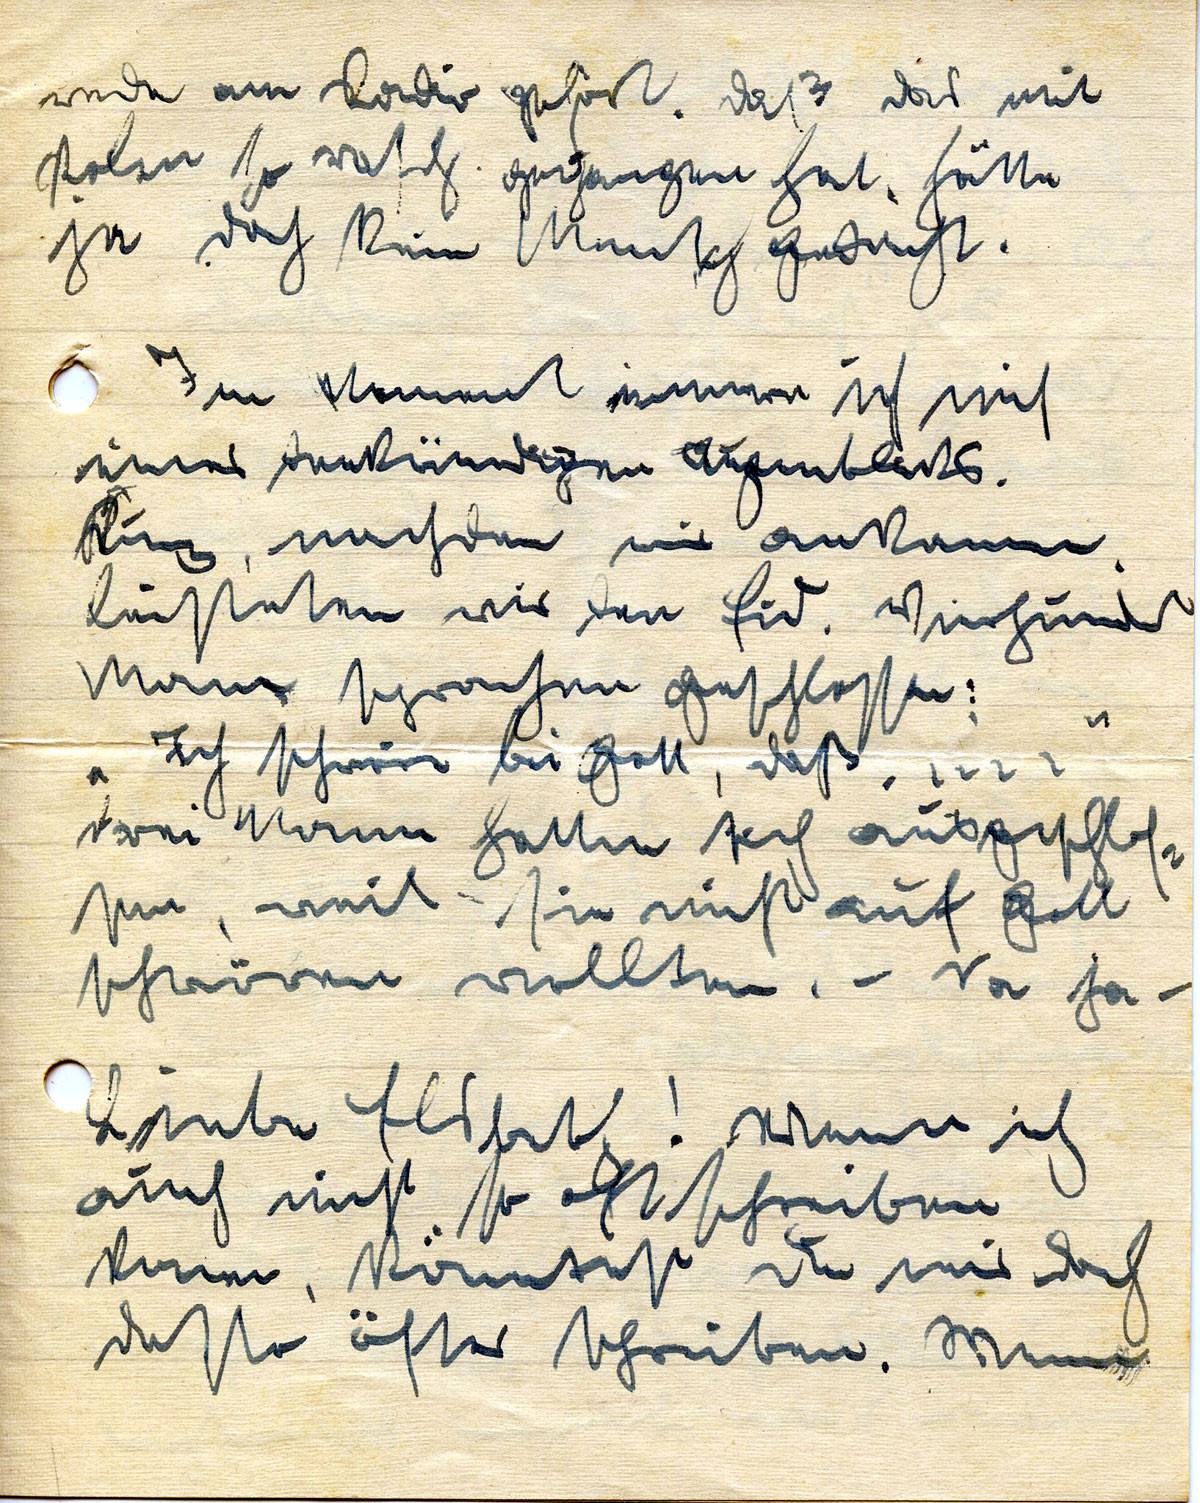 rede am Radio gehört. Daß das mit
Polen so rasch gegangen hat, hätte
ja doch kein Mensch gedacht.
Im Moment erinnere ich mich
eines denkwürdigen Augenblicks.
Kurz, nachdem wir ankamen,
leisteten wir den Eid. Vierhundert
Mann sprachen geschlossen:
"Ich schwöre bei Gott, daß . . . . . "
Drei Mann hatten sich ausgeschlos-
sen, weil sie nicht auf Gott
schwören wollten. – Na ja –
Liebe Elsbeth! Wenn ich
auch nicht so oft schreiben
kann, könntest du mir doch
desto öfter schreiben. Wenn